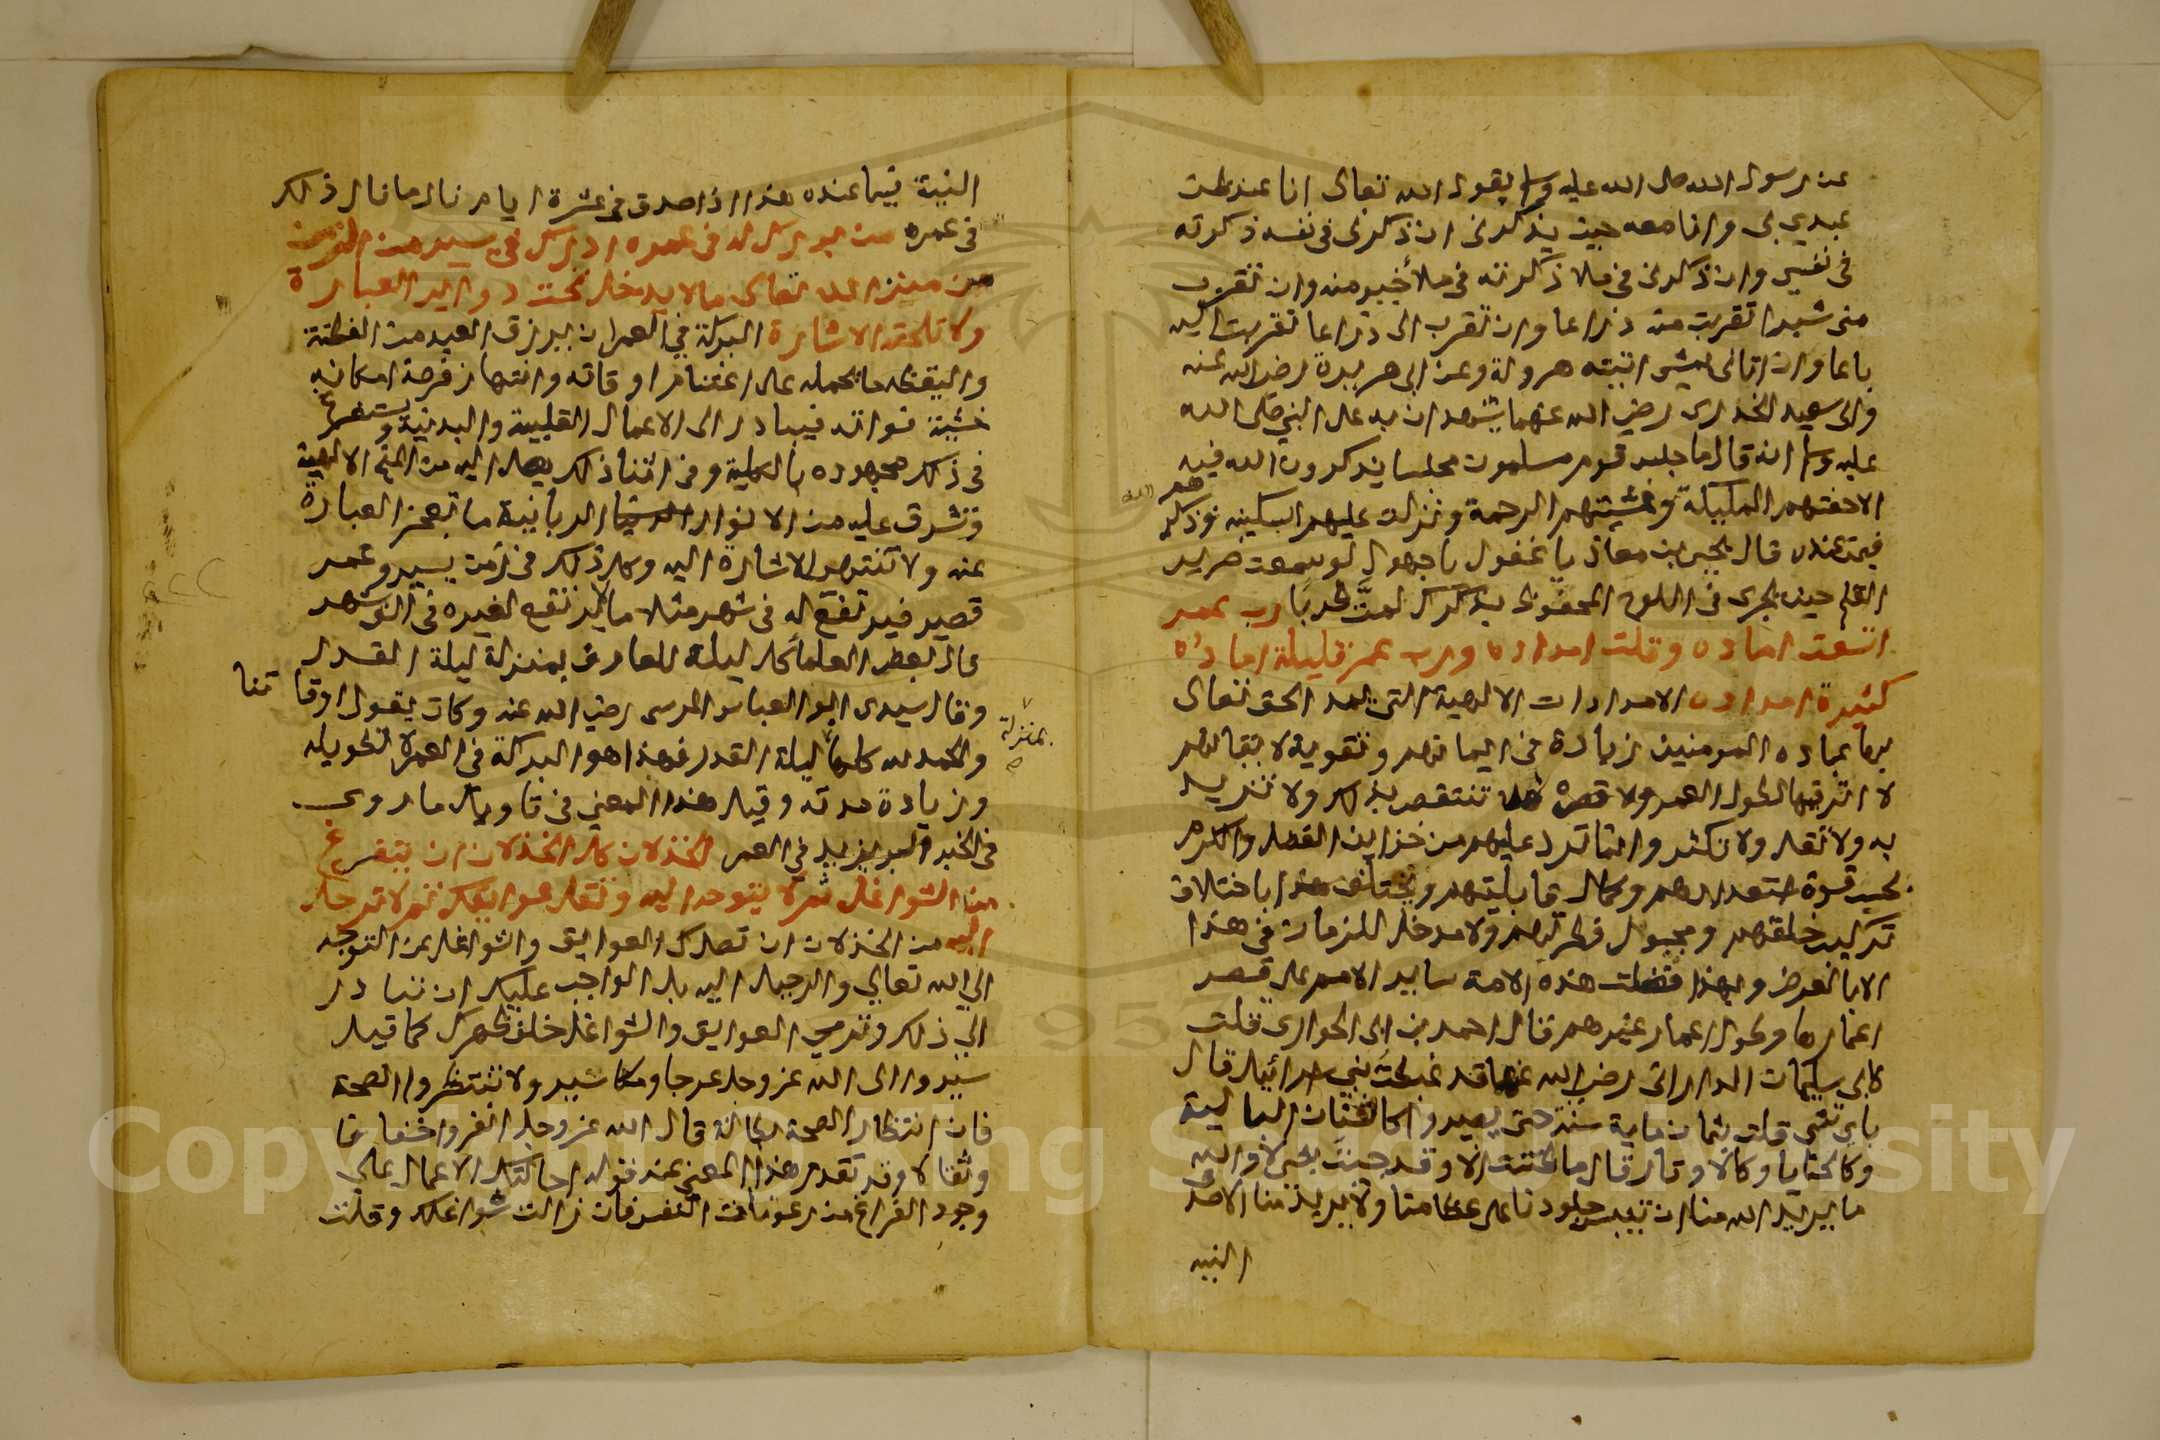 عن رسول الله صلى الله عليه وسلم يقول الله تعالى انا عند ظن
عبدي بى وانا معه حين يذكرنى ان ذكرنى فى نفسه ذكرته
فى نفسى وان ذكرنى فى ملا ذكرته فى ملأ خير منه وان تقرب
منى شبرا تقربت منه ذراعا وان تقرب الى ذراعا تقربت اليه
باعا وان اتانى يمشى اتيته هرولة وعن ابى هريرة رضى الله عنه
وابى سعيد الخدرى رضى الله عنهما يشهدان به على النبى صلى الله
عليه وسلم انه قال ما جلس قوم مسلمون مجلسا يذكرون الله فيه
الا حفتهم المليكة وغشيتهم الرحمة ونزلت عليهم السكينه وذكرهم الله
فيمن عنده قال يحيى بن معاذ يا غفول يا جهول لو سمعت صرير
القلم حين يجرى فى اللوح المحفوظ بذكرك لمتَّ طربا رب عمر
اتسعت اماده وقلت امداده ورب عمر قليلة اماده
كثيرة امداده الامدادات الالهية التى يمد الحق تعالى
بها عباده المومنين زيادة فى ايمانهم وتقوية لايقانهم
لا اثر فيها لطول العمر ولا قصره تنتقص بذلك ولا تزيد
به ولا تقل ولا تكثر وانما ترد عليهم من خزاين الفضل والكرم
بحسب قوة استعدادهم وكمال قابليتهم ويختلف هذا باختلاف
تركيب خلقتهم ومجبول فطرتهم ولا مدخل للزمان فى هذا
الا بالعرض وبهذا فضلت هذه الامة ساير الامم على قصر
اعمارها وطول اعمار غيرهم قال احمد بن ابى الحوارى قلت
لابى سليمان الدارانى رضى الله عنهما قد غبطت بنى اسرائيل قال
باى شى قلت بثمان ماية سنة حتى يصيروا كالشنان البالية
وكالحنايا وكالاوتار قال ما ظننت الا وقد جيت بشى لا والله
ما يريد الله منا ان تيبس جلودنا على عظامنا ولا يريد منا الا صدق
النيه
النية فيما عنده هذا اذا صدق فى عشرة ايام نال ما نال ذلك
فى عمره من بورك له فى عمره ادرك فى يسير من الزمن
من منن الله تعالى ما لا يدخل تحت دواير العبارة
ولا تلحقه الاشارة البركة فى العمر ان يرزق العبد من الفطنة
واليقظه ما يحمله على اغتنام اوقاته وانتهاز فرصة امكانه
خشية فواته فيبادر الى الاعمال القلبية والبدنية ويستفرغ
فى ذلك مجهوده بالكلية وفى اثنا ذلك يصل اليه من المنح الالهية
وتشرق عليه من الانوار الربانية ما تعجز العبارة
عنه ولا تنتهى الاشارة اليه وكل ذلك فى زمن يسير وعمر
قصير فيرتفع له فى شهر مثلا ما لا يرتفع لغيره فى الف شهر
قال بعض العلما كل ليلة للعارف بمنزلة ليلة القدر
وقال سيدى ابو العباس المرسى رضى الله عنه وكان يقول اوقاتنا
بمنزلة
والحمد لله كلها ليلة القدر فهذا هو البركة فى العمر لا تطويله
وزيادة مدته وقيل هذا المعنى فى تاويل ما روى
فى الخبر البر يزيد فى العمر الخذلان كل الخذلان ان تتفرغ
من الشواغل ثم لا تتوجه اليه وتقل عوايقك ثم لا ترحل
اليه من الخذلان ان تصدك العوايق والشواغل عن التوجه
الى الله تعالى والرحيل اليه بل الواجب عليك ان تبادر
الى ذلك وترمى العوايق والشواغل خلف ظهرك كما قيل
سيروا الى الله عز وجل عرجا ومكاسير ولا تنتظروا الصحة
فان انتظار الصحة بطالة قال الله عز وجل انفروا خفافا
وثقالا وقد تقدم هذا المعنى عند قوله احالتك الاعمال على
وجود الفراغ من رعونات النفس فان زالت شواغلك وقلت